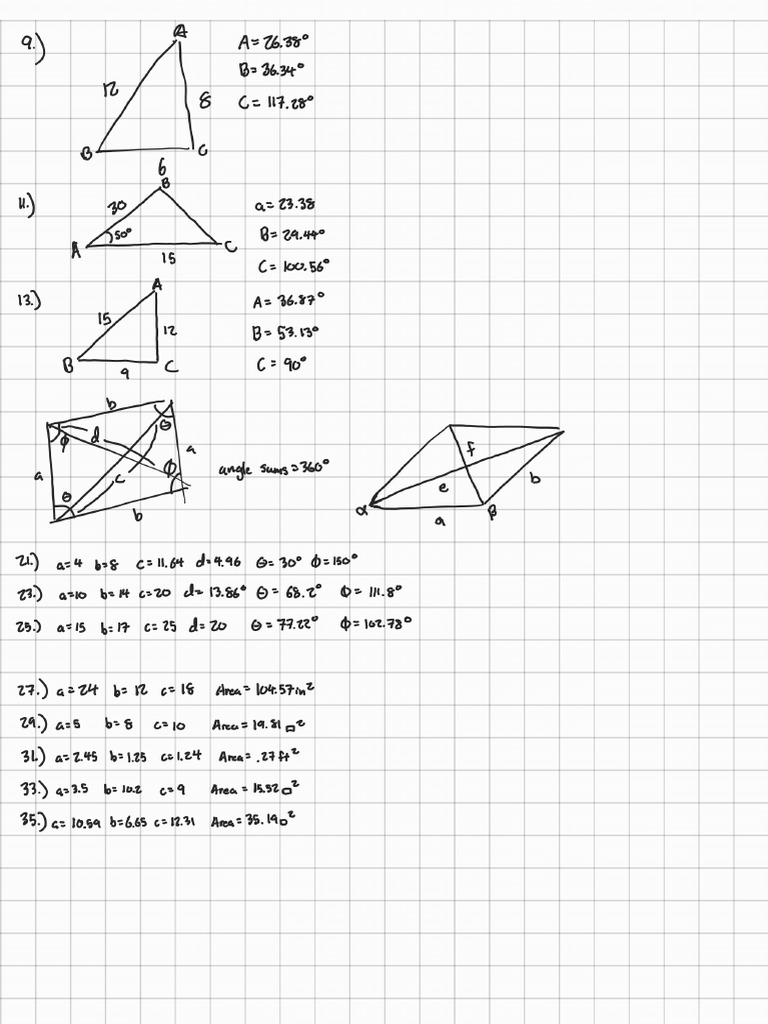 9.)
A
12
8
B
C
6
A = 26.38°
B = 36.34°
C = 117.28°
11.)
B
30
50°
A
C
15
a = 23.38
B = 29.44°
C = 100.56°
13.)
A
15
12
B
C
9
A = 36.87°
B = 53.13°
C = 90°
b
θ
ϕ
d
a
a
c
ϕ
θ
b
angle sums = 360°
f
e
b
α
β
a
21.) a=4 b=8 c=11.64 d=4.96 θ=30° ϕ=150°
23.) a=10 b=14 c=20 d=13.86° θ=68.2° ϕ=111.8°
25.) a=15 b=17 c=25 d=20 θ=77.22° ϕ=102.78°
27.) a=24 b=12 c=18 Area=104.57in²
29.) a=5 b=8 c=10 Area=19.81□²
31.) a=2.45 b=1.25 c=1.24 Area=.27ft²
33.) a=3.5 b=10.2 c=9 Area=15.52□²
35.) a=10.59 b=6.65 c=12.31 Area=35.19□²